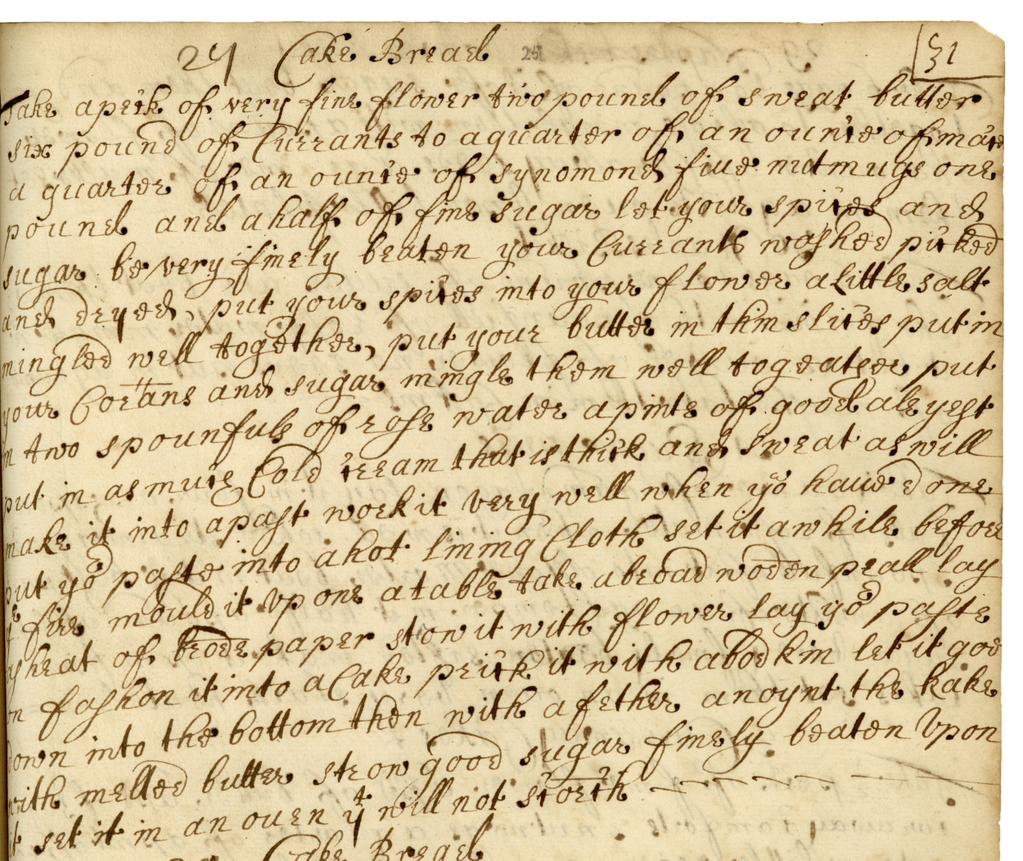 24 Cake Bread 251 51
Take a peck of very fine flower two pound of sweat butter
six pound of Currants to a quarter of an ounce of mace
a quarter of an ounce of synomond five nutmugs one
pound and a half of fine sugar let your spices and
sugar be very finely beaten your Currants washed picked
and dryed, put your spices into your flower a little salt
mingled well together, put your butter in thin slices put in
your Corrans and sugar mingle them well togeather put
in two spounfuls of rose water a pinte of good ale yest
put in as much Cold cream that is thick and sweat as will
make it into a past work it very well when yo haue done
put yor paste into a hot lining Cloth set it a while before
ye fire mould it vp one a table take a broad woden peall lay
a sheat of brode paper strow it with flower lay yor paste
on fashon it into a Cake prick it with a bodkin let it goe
down into the bottom then with a fether anoynt the kake
with melted butter strow good sugar finely beaten Vpon
it set it in an ouen yt will not scorch
Cake Bread